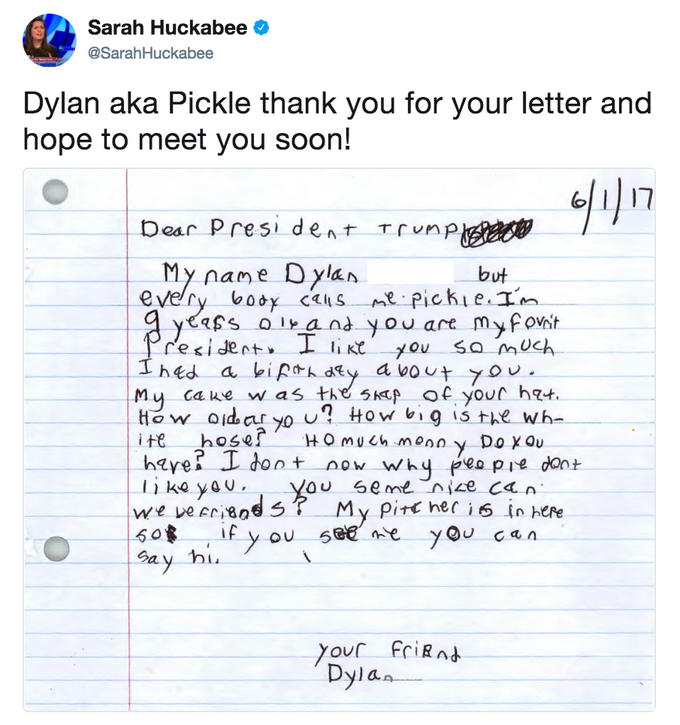 Sarah Huckabee
@SarahHuckabee
Dylan aka Pickle thank you for your letter and
hope to meet you soon!
6/1/17
Dear President Trump
My name Dylan but
every body calls me pickle. I'm
9 years old and you are my fovrit
President. I like you so much
I had a birthday about you.
My cake was the shap of your hat.
How old ar you? How big is the wh-
ite hose? Ho much monny Do you
have? I dont now why people dont
like you. You seme nice can
we be friends? My pitcher is in here
so if you see me you can
say hi.
your friend
Dylan